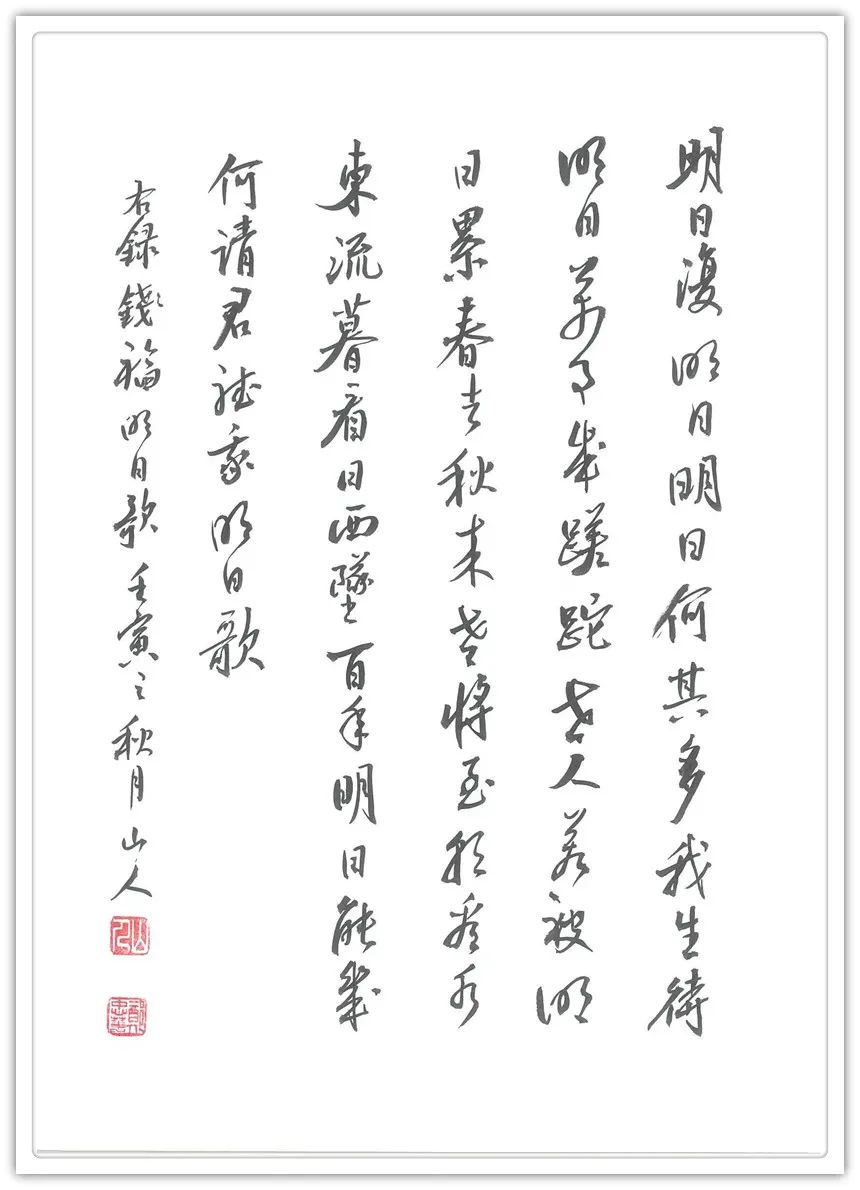 明日復明日明日何其多我生待
明日萬事成蹉跎世人若被明
日累春去秋来老將至朝看水
東流暮看日西墜百年明日能幾
何請君聽我明日歌
右録錢福明日歌壬寅之秋月山人
山人